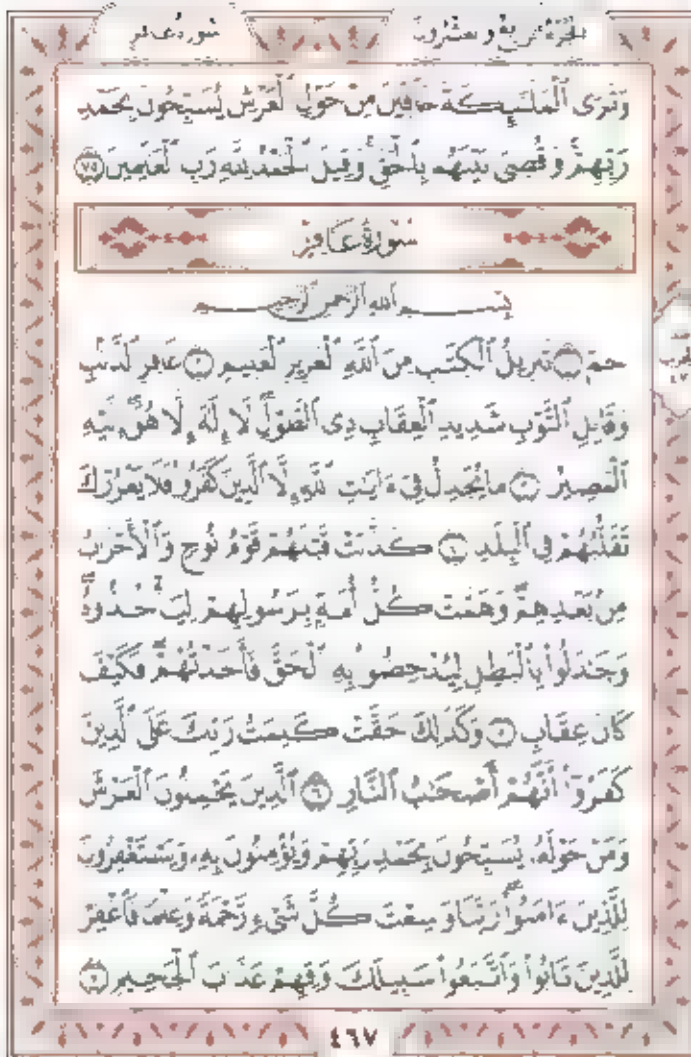 سورة غافر الجزء الرابع والعشرون
وَتَرَى ٱلْمَلَٰٓئِكَةَ حَآفِّينَ مِنْ حَوْلِ ٱلْعَرْشِ يُسَبِّحُونَ بِحَمْدِ
رَبِّهِمْ ۖ وَقُضِىَ بَيْنَهُم بِٱلْحَقِّ وَقِيلَ ٱلْحَمْدُ لِلَّهِ رَبِّ ٱلْعَٰلَمِينَ ٧٥
سُورَةُ غَافِر
بِسْمِ ٱللَّهِ ٱلرَّحْمَٰنِ ٱلرَّحِيمِ
حمٓ ١ تَنزِيلُ ٱلْكِتَٰبِ مِنَ ٱللَّهِ ٱلْعَزِيزِ ٱلْعَلِيمِ ٢ غَافِرِ ٱلذَّنۢبِ
وَقَابِلِ ٱلتَّوْبِ شَدِيدِ ٱلْعِقَابِ ذِى ٱلطَّوْلِ ۖ لَآ إِلَٰهَ إِلَّا هُوَ ۖ إِلَيْهِ
ٱلْمَصِيرُ ٣ مَا يُجَٰدِلُ فِىٓ ءَايَٰتِ ٱللَّهِ إِلَّا ٱلَّذِينَ كَفَرُوا۟ فَلَا يَغْرُرْكَ
تَقَلُّبُهُمْ فِى ٱلْبِلَٰدِ ٤ كَذَّبَتْ قَبْلَهُمْ قَوْمُ نُوحٍ وَٱلْأَحْزَابُ
مِنۢ بَعْدِهِمْ ۖ وَهَمَّتْ كُلُّ أُمَّةٍۭ بِرَسُولِهِمْ لِيَأْخُذُوهُ ۖ
وَجَٰدَلُوا۟ بِٱلْبَٰطِلِ لِيُدْحِضُوا۟ بِهِ ٱلْحَقَّ فَأَخَذْتُهُمْ ۖ فَكَيْفَ
كَانَ عِقَابِ ٥ وَكَذَٰلِكَ حَقَّتْ كَلِمَتُ رَبِّكَ عَلَى ٱلَّذِينَ
كَفَرُوٓا۟ أَنَّهُمْ أَصْحَٰبُ ٱلنَّارِ ٦ ٱلَّذِينَ يَحْمِلُونَ ٱلْعَرْشَ
وَمَنْ حَوْلَهُۥ يُسَبِّحُونَ بِحَمْدِ رَبِّهِمْ وَيُؤْمِنُونَ بِهِۦ وَيَسْتَغْفِرُونَ
لِلَّذِينَ ءَامَنُوا۟ رَبَّنَا وَسِعْتَ كُلَّ شَىْءٍ رَّحْمَةً وَعِلْمًا فَٱغْفِرْ
لِلَّذِينَ تَابُوا۟ وَٱتَّبَعُوا۟ سَبِيلَكَ وَقِهِمْ عَذَابَ ٱلْجَحِيمِ ٧
٤٦٧